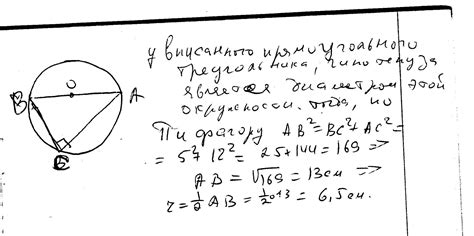 у вписанного прямоугольного
треугольника, гипотенуза
является диаметром этой
окружности. тогда, по
Пифагору AB²=BC²+AC²=
= 5²+12² = 25+144=169 =>
AB = √169 = 13см =>
r = 1/2 AB = 1/2·13 = 6,5см.
O
B
A
C